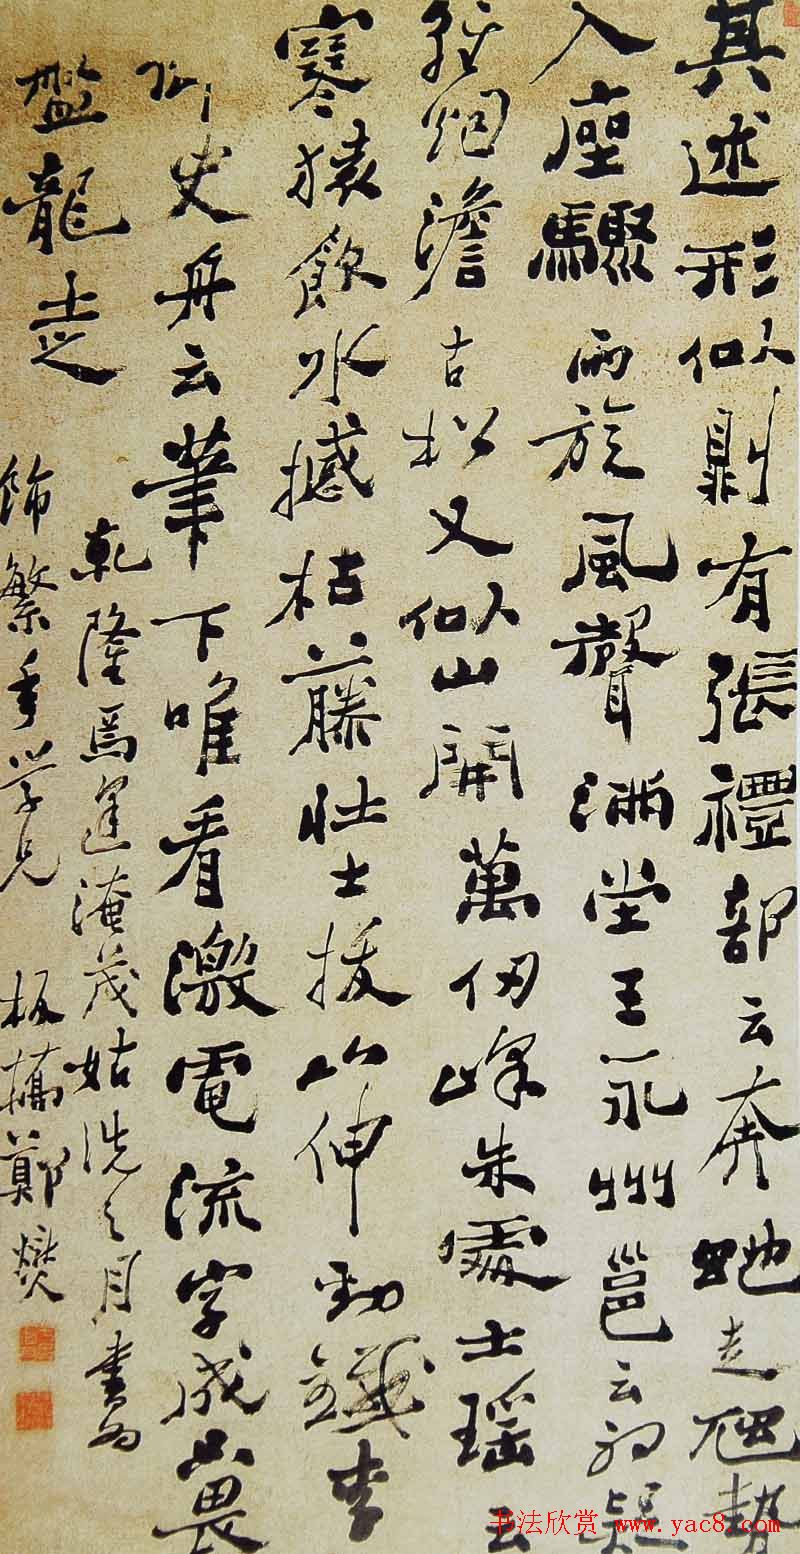 其述形似則有張禮部云奔虵走虺勢
入座驟雨旋風聲滿堂王永州邕云初疑
輕烟澹古松又似山開萬仞峰朱處士瑶云
寒猿飲水撼枯藤壯士拔山伸勁鐵李
御史舟云筆下唯看激電流字成只畏
盤龍走
乾隆焉逢淹茂姑洗之月書為
飾繁年学兄 板橋鄭燮
书法欣赏 www.yac8.com